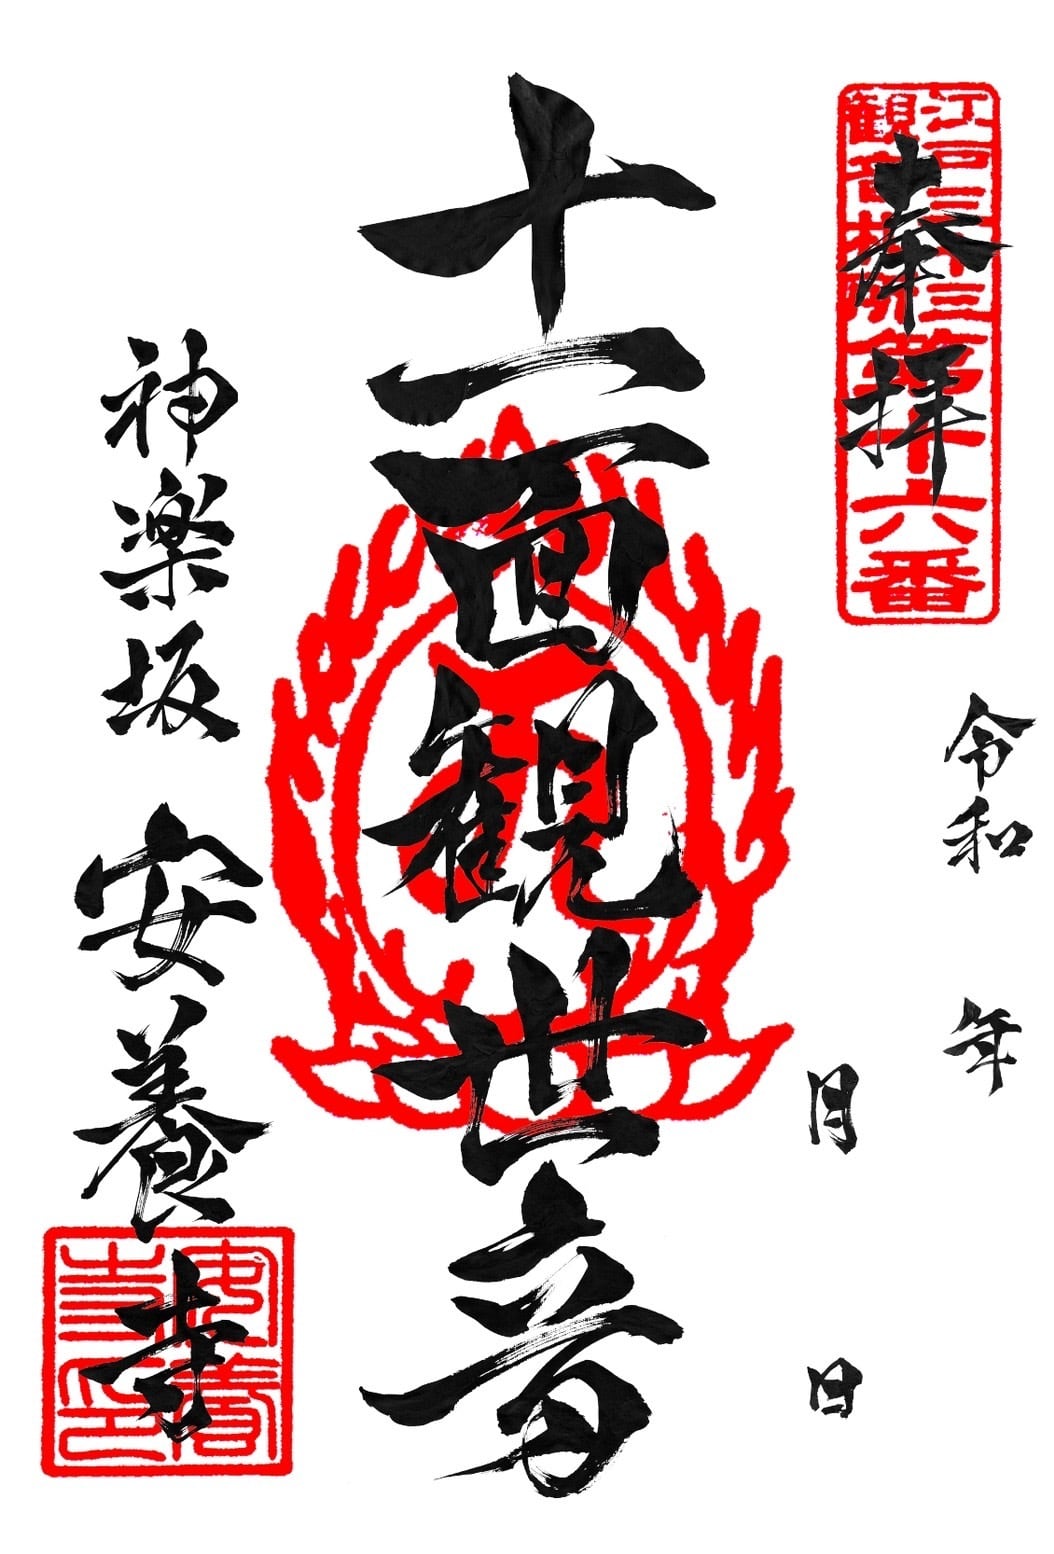 奉拝
江戸三十三
観音札所
第十六番
令和 年
月 日
十一面観世音
神楽坂 安養寺
安養寺印